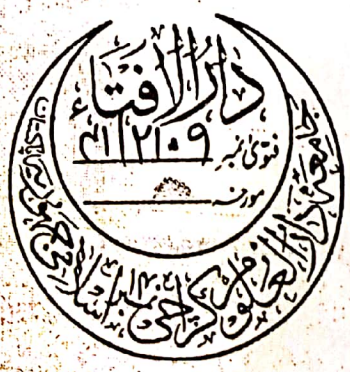 دارالافتاء
فتویٰ نمبر
مورخہ
جامعہ دارالعلوم کراچی نمبر ۱۴ اسلامی جمہوریہ پاکستان